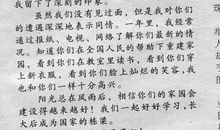 我留下了深刻的印象。
虽然我们没有见过面，但是我对你们
的遭遇深深地表示同情。一年里，我经常
通过报纸、电视、网络了解你们最新的情
况。知道你们在全国人民的帮助下重建家
园，看到你们在教室里读书，看到你们穿
上新衣服，看到你们脸上灿烂的笑容，我
也和你们一样十分高兴。
阳光总在风雨后，相信你们的家园会
建设得越来越好！我们一起好好学习，长
大后成为国家的栋梁。